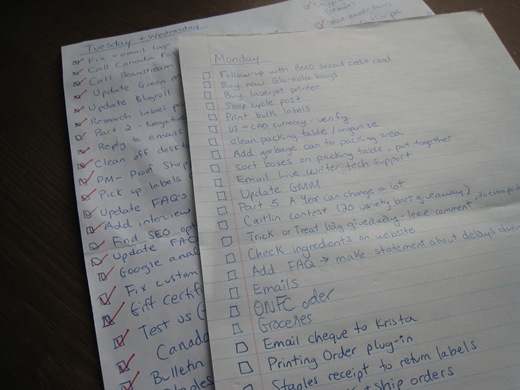 Tuesday + Wednesday
Fix + email logo
Call Canada Post
Call Beanstream
Update Green
Update Blogroll
Research label
Part 2 - Negative
Reply to emails
Clean off desktop
PM - Proof Shop
Pick up labels
Update FAQ's
Add interview
Find SEO
Update FAQ
Google
Fix custom
Gift Certif
Test US
Canada
Bulletin
Monday
Follow up with BMO second credit card
Buy new Glo-cola bags
Buy laserjet printer
Sleep cycle post
Print bulk labels
US → CAD currency - verify
clean packing table/organize
Add garbage can to packing area
sort boxes on packing table, put together
Email Live writer tech support
Update GMM
Part 5 A Year can change a lot
Caitlin contest (20 variety bars giveaway)
Trick or Treat bag giveaway - leave comment
Check ingredients on website
Add FAQ → make statement about delays
Emails
ONFC order
Groceries
Email cheque to Krista
Printing Order plug-in
Staples receipt to return labels
ship orders